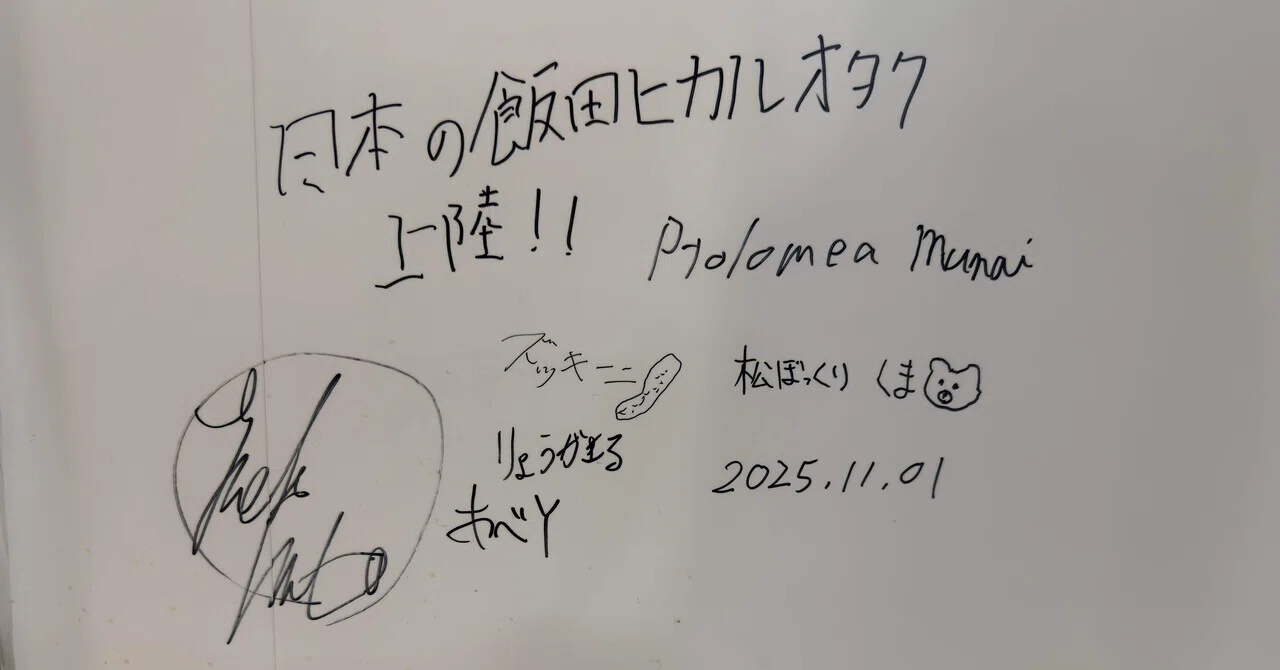 日本の飯田ヒカルオタク
上陸!!
Ptolomea Munai
ズッキーニ
松ぼっくり くま
りょうがまる
2025.11.01
あべY